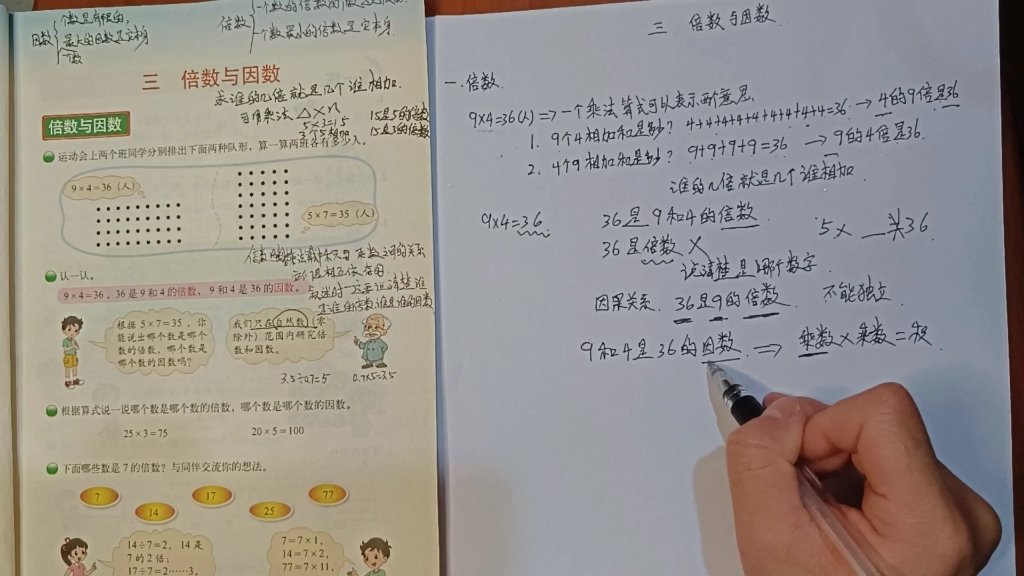 个数是有限的,
因数 最大的因数是它本身
倍数
一个数最小的倍数是它本身
三 倍数与因数
求谁的几倍就是几个谁相加
可用乘法 △×n
5×3=15
3个5相加
15是5的倍数
15是3的倍数
倍数与因数
运动会上两个班同学分别排出下面两种队形,算一算两班各有多少人。
9×4=36(人)
5×7=35(人)
认一认。
9×4=36,36是9和4的倍数,9和4是36的因数。
根据5×7=35,你
能说出哪个数是哪个
数的倍数,哪个数是
哪个数的因数吗?
我们只在自然数(零
除外)范围内研究倍
数和因数。
3.5÷0.7=5
0.7×5=3.5
根据算式说一说哪个数是哪个数的倍数,哪个数是哪个数的因数。
25×3=75 20×5=100
下面哪些数是7的倍数?与同伴交流你的想法。
7 14 17 25 77
14÷7=2,14是
7的2倍;
17÷7=2……3,
7=7×1,
14=7×2,
77=7×11,
三 倍数与因数
一.倍数
9×4=36(人) ⇒ 一个乘法算式可以表示两个意思
1. 9个4相加和是多少? 4+4+4+4+4+4+4+4+4=36 → 4的9倍是36
2. 4个9相加和是多少? 9+9+9+9=36 → 9的4倍是36.
谁的几倍就是几个谁相加.
9×4=36 36是9和4的倍数
36是倍数 ×
5× 36
说清楚是哪个数字
因果关系. 36是9的倍数 不能独立.
9和4是36的因数 ⇒ 乘数×乘数=积